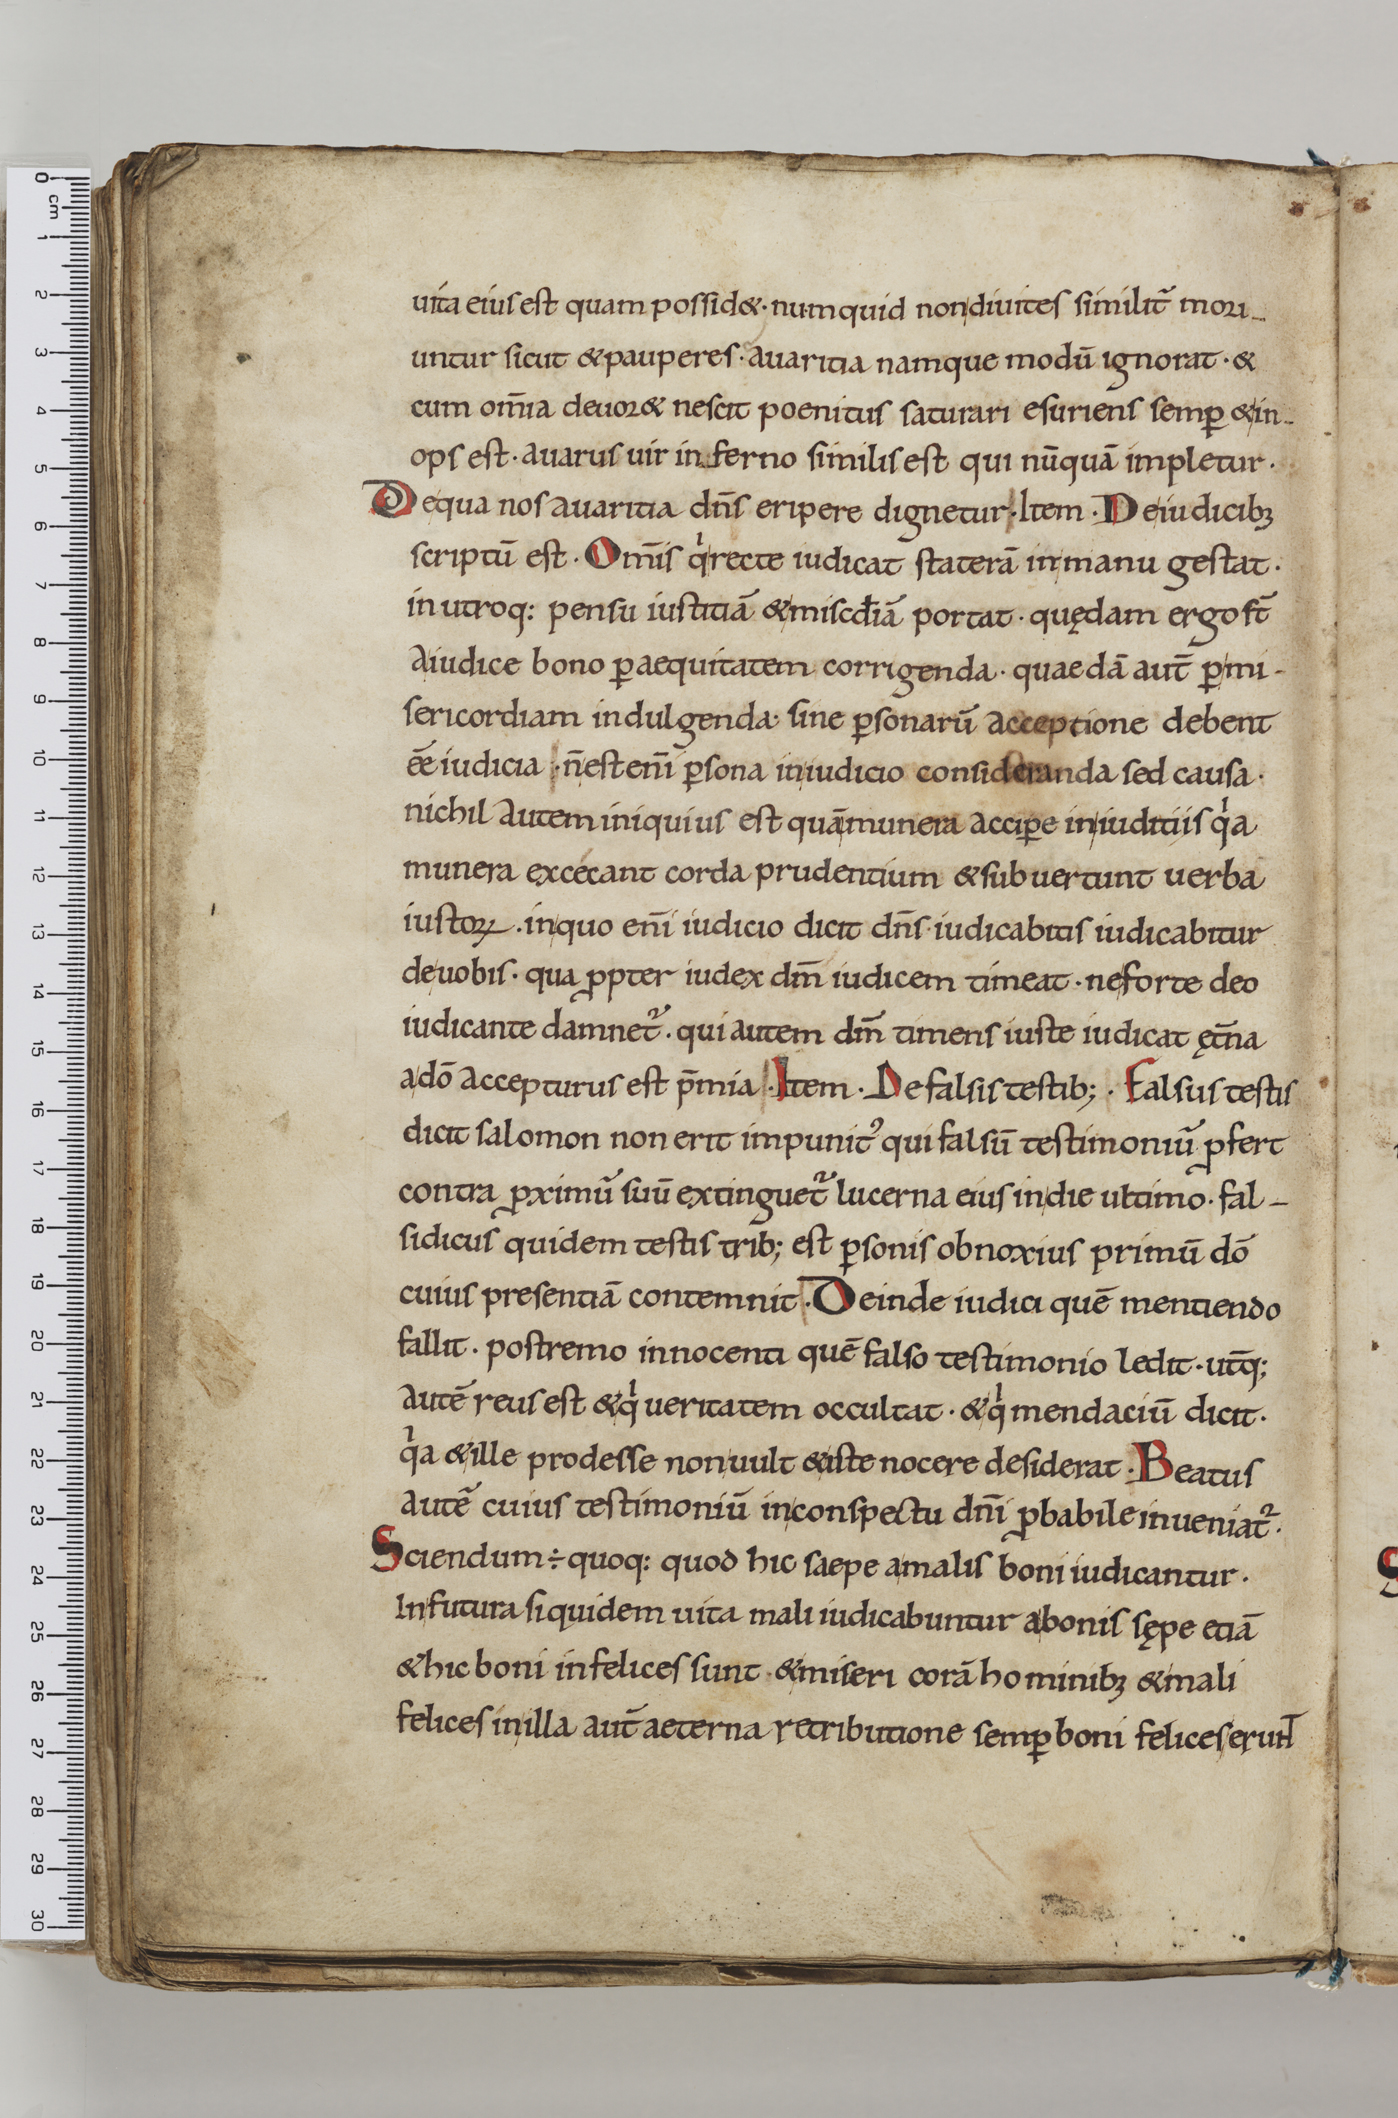 uita eius est quam possid&· numquid non diuites similit̄ mori-
untur sicut & pauperes· auaritia namque modū ignorat· &
cum om̄ia deuor& nescit poenitus saturari esuriens semꝑ & in-
ops est· auarus uir in ferno similis est qui nūquā impletur·
De qua nos auaritia dn̄s eripere dignetur· Item· De iudicibꝫ
scriptū est· Om̄is qͥ recte iudicat staterā in manu gestat·
in utroq: pensu iustitiā & misc̄diā portat· quędam ergo st̄
a iudice bono ꝑ aequitatem corrigenda· quaedā aut̄ ꝑ mi-
sericordiam indulgenda· sine ꝑsonarū acceptione debent
ēē iudicia· n̄ est eni̅ ꝑsona in iudicio consideranda sed causa·
nichil autem iniquius est quā munera acciꝑe in iuditiis qͥa
munera excecant corda prudentium & subuertunt uerba
iustoꝝ· in quo eni̅ iudicio dicit dn̄s· iudicabitis iudicabitur
de uobis· qua ꝓpter iudex dm̄ iudicem timeat· ne forte deo
iudicante damnet᷑· qui autem dm̄ timens iuste iudicat ęt̄na
a dō accepturus est p̄mia· Item· De falsis testib;· Falsus testis
dicit salomon non erit impunit᾽ qui falsū testimoniū ꝓfert
contra ꝓximū suū extinguet᷑ lucerna eius in die ultimo· fal-
sidicus quidem testis trib; est ꝑsonis obnoxius primū dō
cuius presentiā contemnit· Deinde iudici quē mentiendo
fallit· postremo innocenti quē falso testimonio ledit· ut̄q;
autē reus est & qͥ ueritatem occultat· & qͥ mendaciū dicit·
qͥa & ille prodesse non uult & iste nocere desiderat· Beatus
autē cuius testimoniū in conspectu dn̄i ꝓbabile inueniat᷑·
Sciendum ÷ quoq: quod hic saepe a malis boni iudicantur·
In futura siquidem uita mali iudicabuntur a bonis sępe etiā
& hic boni infelices sunt & miseri corā hominibꝫ & mali
felices in illa aut̄ aeterna retributione semꝑ boni felices erunt